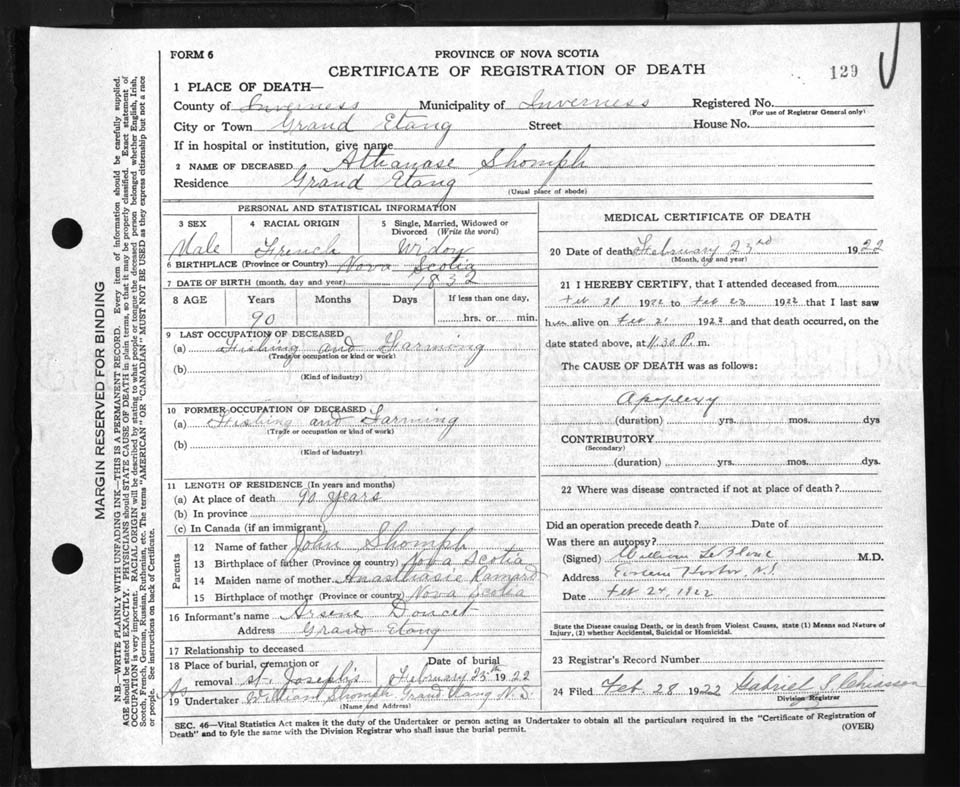 FORM 6
PROVINCE OF NOVA SCOTIA
CERTIFICATE OF REGISTRATION OF DEATH
129
1 PLACE OF DEATH—
County of Inverness Municipality of Inverness Registered No.
(For use of Registrar General only)
City or Town Grand Etang Street House No.
If in hospital or institution, give name
2 NAME OF DECEASED Athanase Shomph
Residence Grand Etang
(Usual place of abode)
PERSONAL AND STATISTICAL INFORMATION
3 SEX 4 RACIAL ORIGIN 5 Single, Married, Widowed or Divorced (Write the word)
Male French Widow
6 BIRTHPLACE (Province or Country) Nova Scotia
7 DATE OF BIRTH (month, day and year) 1832
8 AGE Years Months Days If less than one day,
90 hrs. or min.
9 LAST OCCUPATION OF DECEASED
(a) Fishing and Farming
(Trade or occupation or kind or work)
(b)
(Kind of industry)
10 FORMER OCCUPATION OF DECEASED
(a) Fishing and Farming
(Trade or occupation or kind of work)
(b)
(Kind of industry)
11 LENGTH OF RESIDENCE (In years and months)
(a) At place of death 90 years
(b) In province
(c) In Canada (if an immigrant)
Parents
12 Name of father John Shomph
13 Birthplace of father (Province or Country) Nova Scotia
14 Maiden name of mother Anasthasie
15 Birthplace of mother (Province or country) Nova Scotia
16 Informant's name Arsene Doucet
Address Grand Etang
17 Relationship to deceased
18 Place of burial, cremation or Date of burial
removal St. Joseph's February 25th 1922
As
19 Undertaker William Shomph Grand Etang N.S.
(Name and Address)
MEDICAL CERTIFICATE OF DEATH
20 Date of death February 23rd 1922
(Month, day and year)
21 I HEREBY CERTIFY, that I attended deceased from
Feb 21 1922 to Feb 23 1922 that I last saw
him alive on Feb 21 1922 and that death occurred, on the
date stated above, at 11.30 P. m.
The CAUSE OF DEATH was as follows:
Apoplexy
(duration) yrs. mos. dys
CONTRIBUTORY
(Secondary)
(duration) yrs. mos. dys.
22 Where was disease contracted if not at place of death?
Did an operation precede death? Date of
Was there an autopsy?
(Signed) William LeBlanc M.D.
Address Harbor, N.S.
Date Feb 24, 1922
State the Disease causing Death, or in death from Violent Causes, state (1) Means and Nature of
Injury, (2) whether Accidental, Suicidal or Homicidal.
23 Registrar's Record Number
24 Filed Feb. 28 1922 Gabriel S. Chiasson
Division Registrar
SEC. 46—Vital Statistics Act makes it the duty of the Undertaker or person acting as Undertaker to obtain all the particulars required in the "Certificate of Registration of
Death" and to fyle the same with the Division Registrar who shall issue the burial permit.
(OVER)
MARGIN RESERVED FOR BINDING
N.B.—WRITE PLAINLY WITH UNFADING INK—THIS IS A PERMANENT RECORD. Every item of information should be carefully supplied.
AGE should be stated EXACTLY. PHYSICIANS should STATE CAUSE OF DEATH in plain terms, so that it may be properly classified. Exact statement of
OCCUPATION is very important. RACIAL ORIGIN will be described by stating to what people or tongue the deceased person belonged whether English, Irish,
Scotch, French, German, Russian, Ruthenian, etc. The terms "AMERICAN" OR "CANADIAN" MUST NOT BE USED as they express citizenship but not a race
or people. See instructions on back of Certificate.